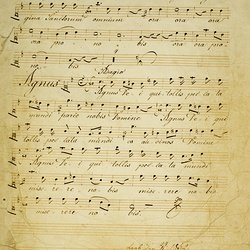 gina Sanctorum omnium ora ora ora
ora pro nobis ora ora pro
no bis Adagio
Agnus Agnus De i qui tollis pec ca ta
mundi parce nobis Domine Agnus De i qui
tollis pec cata mundi ex au di nos Domine
Agnus De i qui tollis pec ca ta mundi
mise re re no bis mise rere no bis
mise rere no bis